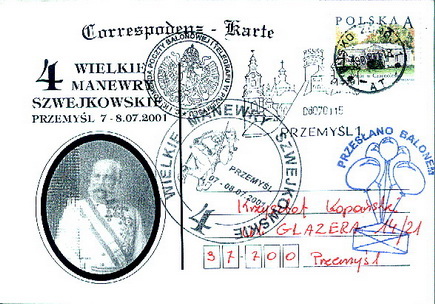 Correspodenz - Karte
POLSKA A
4 WIELKIE
MANEWRY
SZWEJKOWSKIE
PRZEMYŚL 7 - 8.07.2001
PRZEMYŚL 1
PRZESŁANO BALONEM
WIELKIE MANEWRY SZWEJKOWSKIE
PRZEMYŚL
07-08.07.2001
4
Krzysztof Kopański
GLAZERA 14/21
37-700 Przemyśl